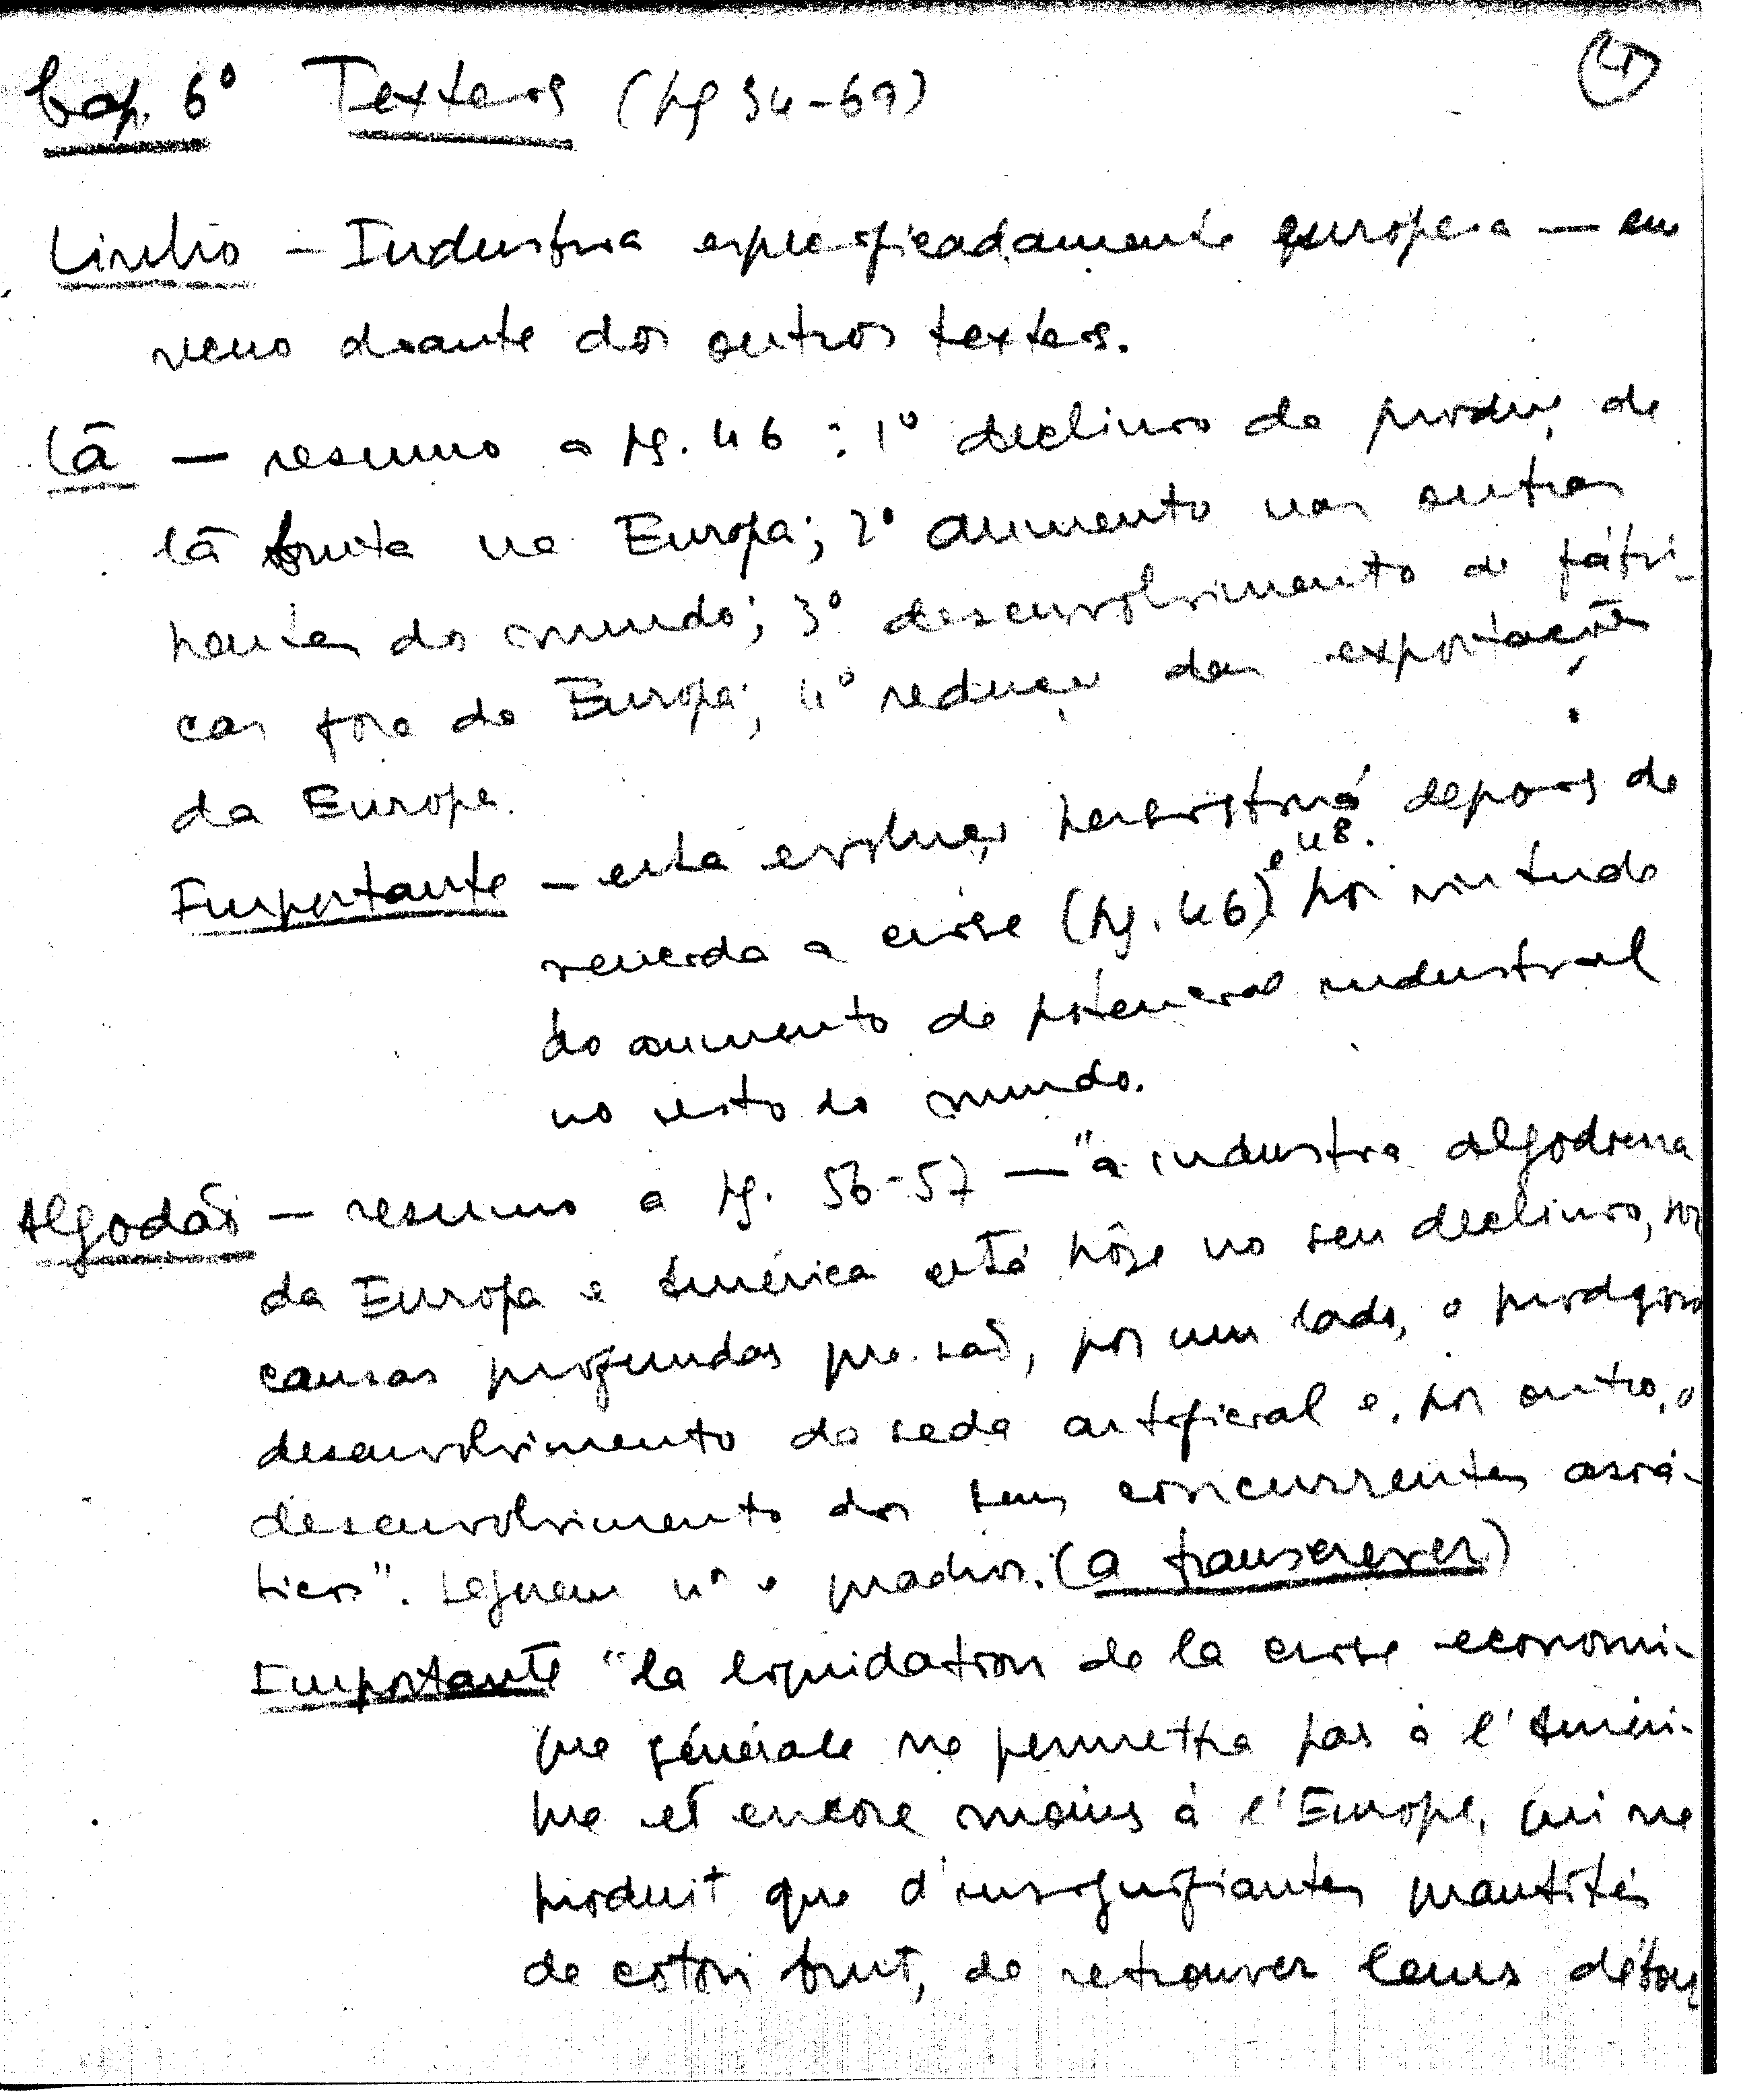 Cap. 6º Texteis (pg 34-69)
Linho - Industria especificadamente europeia — em
recuo deante dos outros texteis.
Lã — resumo a pg. 46 : 1º declinio da produç. de
lã bruta na Europa; 2º aumento nas outras
partes do mundo; 3º desenvolvimento de fábri-
cas fora da Europa; 4º reduçao das exportações
da Europa.
Importante - esta evoluçao persistirá depois de
vencida a crise (pg. 46) e 48. por virtude
do aumento do potencial industrial
no resto do mundo.
Algodão - resumo a pg. 56-57 — "a industria algodoeira
da Europa e América está hoje no seu declinio, por
causas profundas que são, por um lado, o prodigioso
desenvolvimento da seda artificial e, por outro, o
desenvolvimento dos seus concurrentes asiá-
ticos". Seguem nos e quadros. (a transcrever)
Importante "la liquidation de la crise economi-
que générale ne permettra pas à l'Améri-
que et encore moins à l'Europe, qui ne
produit que d'insignifiantes quantités
de coton brut, de retrouver leurs débou